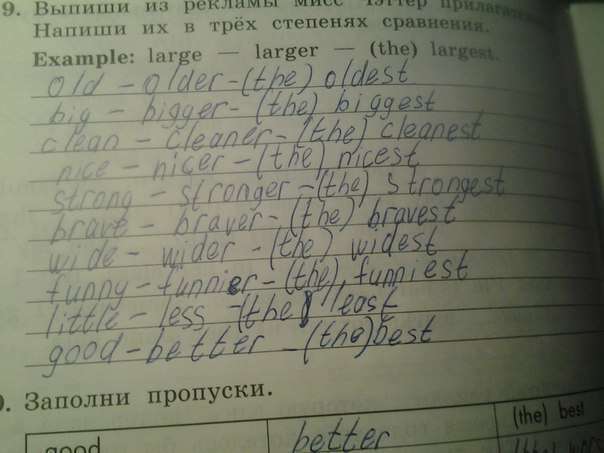 9. Выпиши из рекламы мисс Чэттер прилагательные
Напиши их в трёх степенях сравнения.
Example: large — larger — (the) largest.
old – older – (the) oldest
big – bigger – (the) biggest
clean – cleaner – (the) cleanest
nice – nicer – (the) nicest
strong – stronger – (the) strongest
brave – braver – (the) bravest
wide – wider – (the) widest
funny – funnier – (the) funniest
little – less – (the) least
good – better – (the) best
0. Заполни пропуски.
(the) best
good better